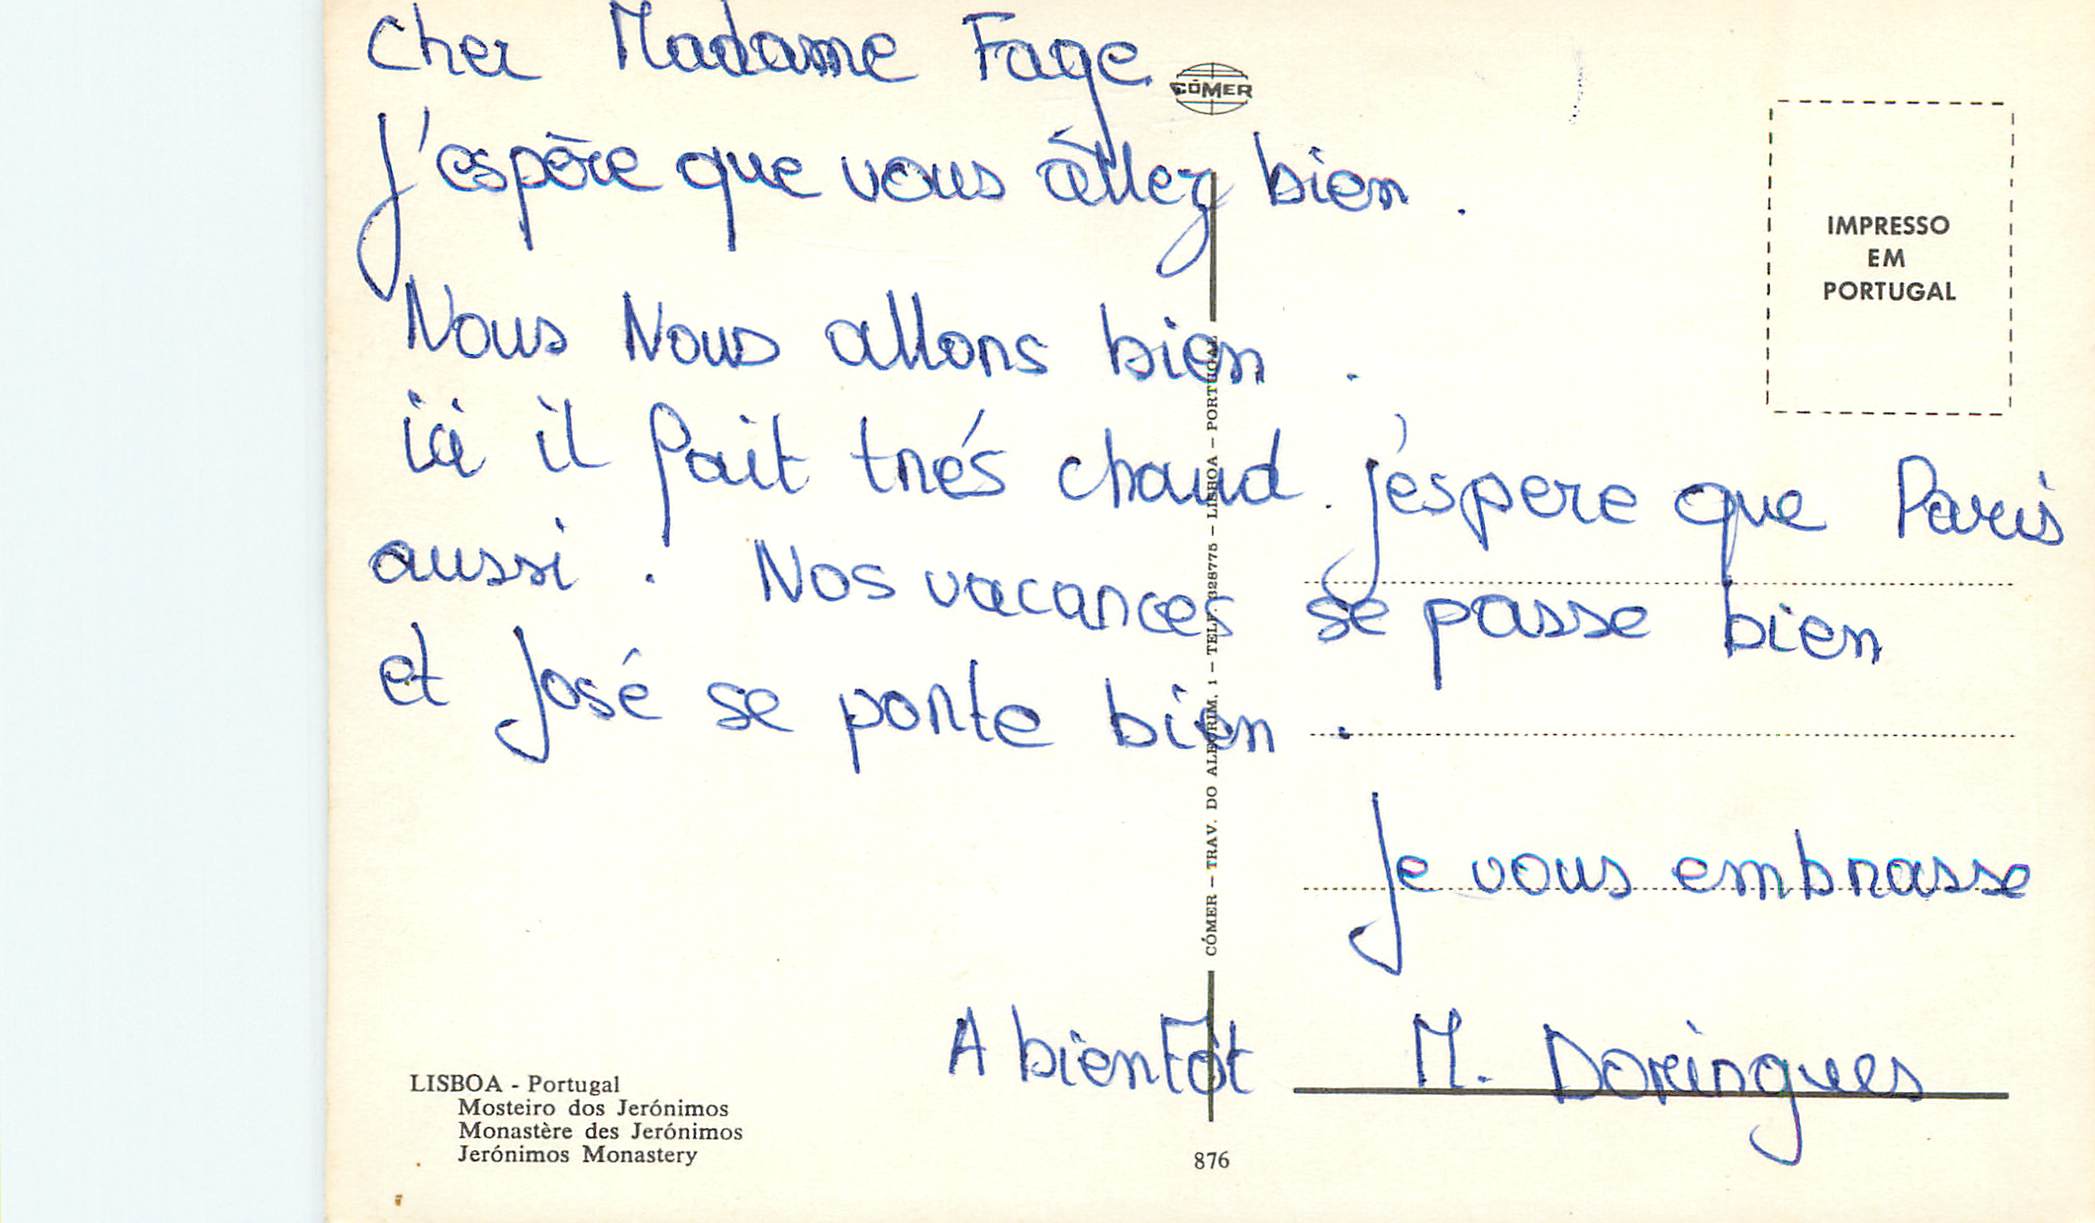 Cher Madame Fage
CÓMER
J'espère que vous âllez bien .
IMPRESSO
EM
PORTUGAL
Nous Nous allons bien .
ici il fait trés chaud . j'espere que Paris
aussi . Nos vacances se passe bien
et José se porte bien .
Je vous embrasse
A bientôt M. Doringues
CÓMER – TRAV. DO ALECRIM, 1 – TELF. 328775 – LISBOA – PORTUGAL
LISBOA - Portugal
Mosteiro dos Jerónimos
Monastère des Jerónimos
Jerónimos Monastery
876